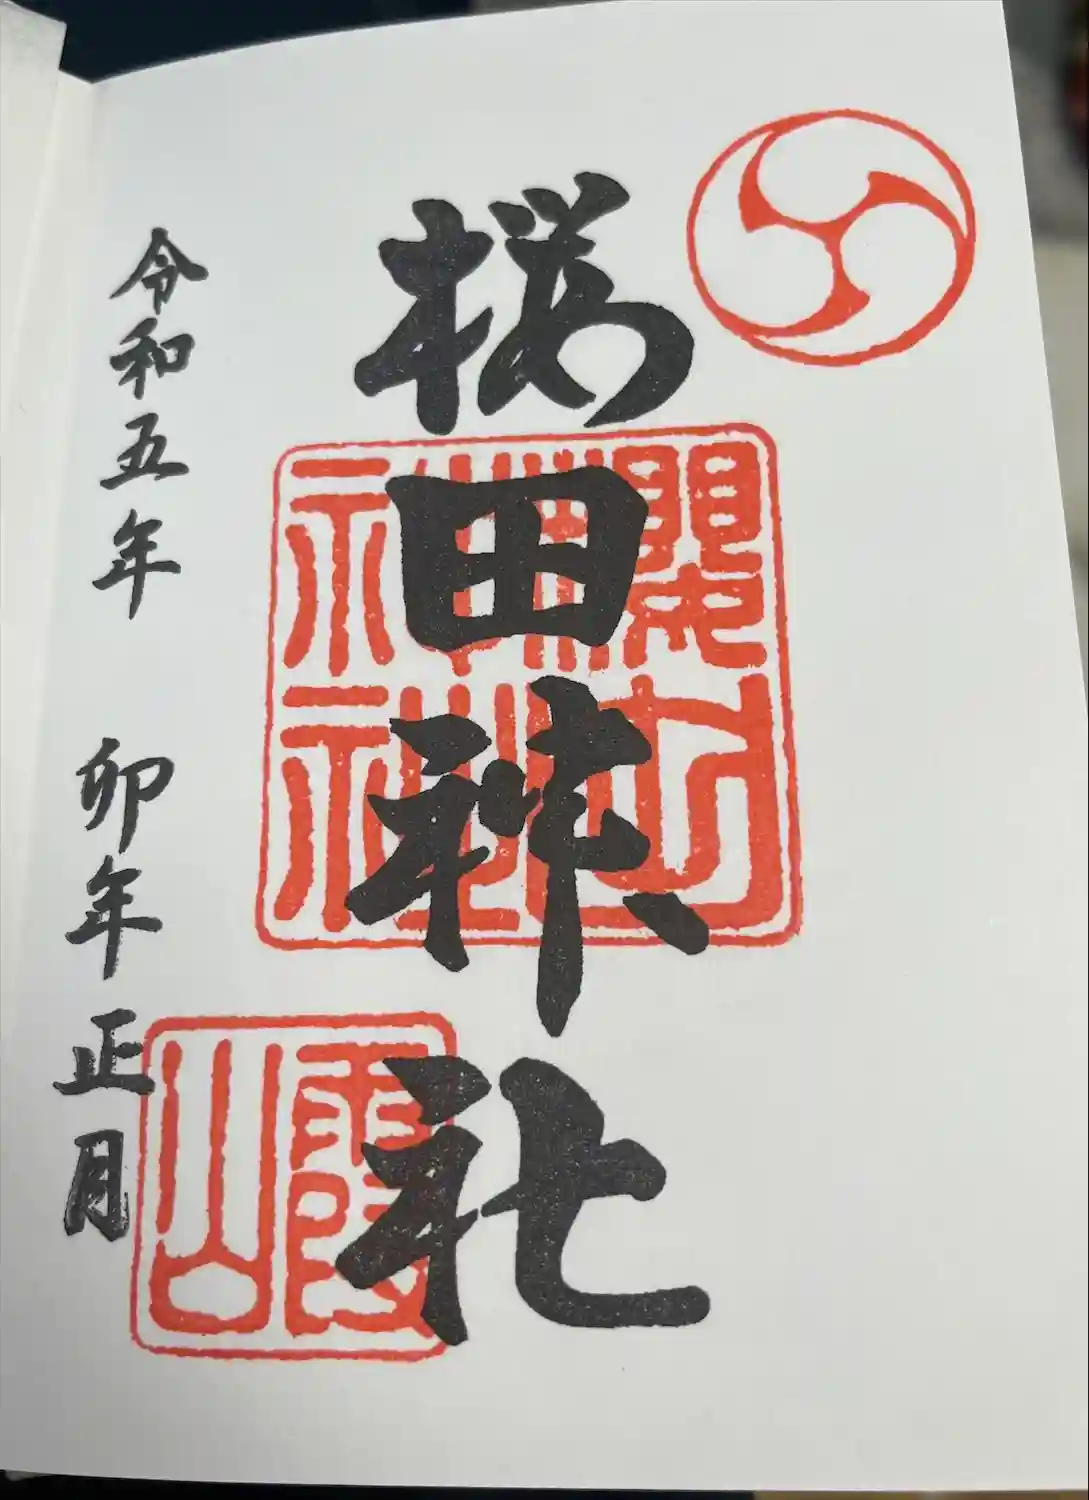 桜田神社
霞山
令和五年 卯年正月